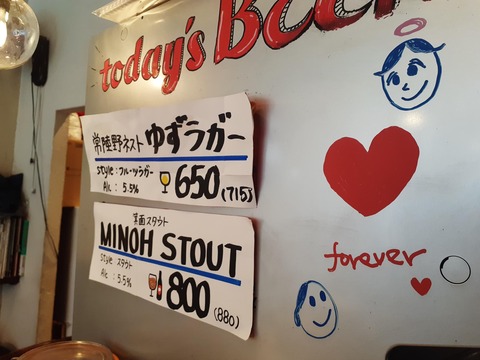 today's BEER
常陸野ネスト ゆずラガー
Style:フルーツラガー
Alc : 5.5%
650 (715)
箕面スタウト
MINOH STOUT
Style:スタウト
Alc : 5.5%
800 (880)
forever